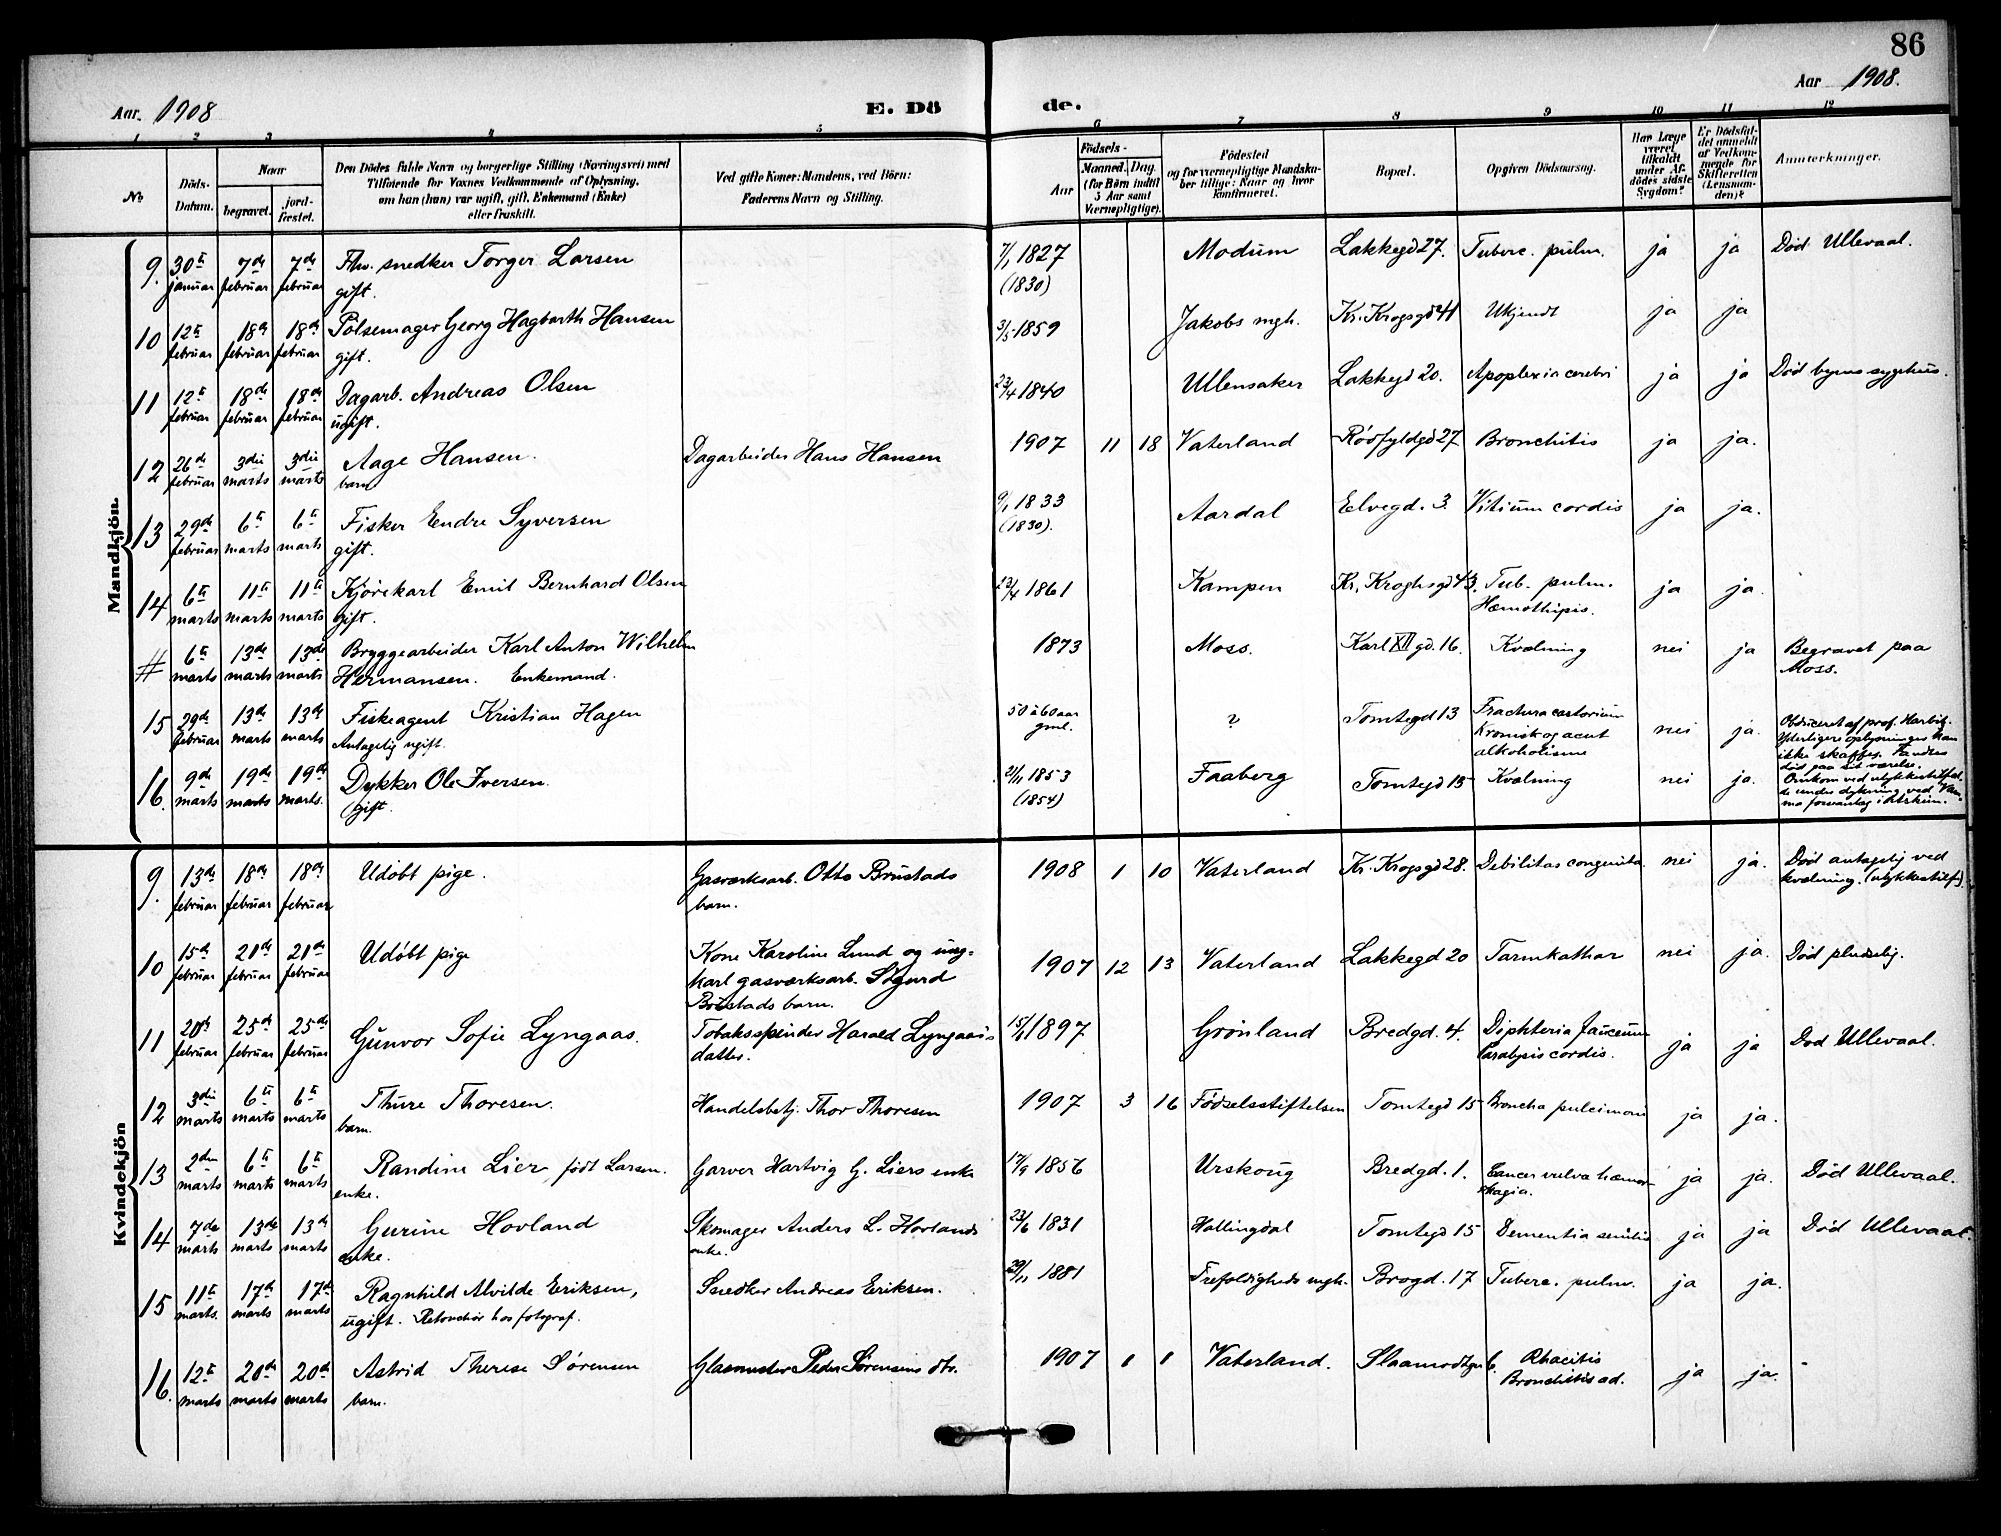 86
Aar 1908.
Aar. 1908
E. Dö
de.
1 2 3 4 5 6 7 8 9 10 11 12
No
Döds-Datum.
Naar
begravet.
jordfæstet.
Den Dödes fulde Navn og borgerlige Stilling (Næringsvei) med
Tilföiende for Voxnes Vedkommende af Oplysning,
om han (hun) var ugift, gift, Enkemand (Enke)
eller fraskilt.
Ved gifte Koner: Mandens, ved Börn:
Faderens Navn og Stilling.
Födsels-
Aar
Maaned. Dag.
(for Börn indtil
5 Aar samt
Værnepligtige).
Födested
og for værnepligtige Mandskaber tillige: Naar og hvor
konfirmeret.
Bopæl.
Opgiven Dödsaarsag.
Har Læge
været
tilkaldt
under Afdödes sidste
Sygdom?
Er Dödsfaldet anmeldt
af Vedkommende for
Skifteretten
(Lensmanden)?
Anmærkninger.
Mandkjön.
9. 30te januar 7de februar 7de februar Fhv. snedker Torger Larsen gift. 7/1 1827 (1830) Modum Lakkegd 27. Tuberc. pulm. ja ja Död Ullevaal.
10 12te februar 18de februar 18de februar Pölsemager Georg Hagbarth Hansen gift. 3/5 1859 Jakobs mgh. Kr. Krogsgd 41 Ukjendt ja ja
11 12te februar 18de februar 18de februar Dagarb. Andreas Olsen ugift. 23/4 1840 Ullensaker Lakkegd 20. Apoplexia cerebri ja ja Död byens sygehus.
12 26de februar 3die marts 3die marts Aage Hansen. barn Dagarbeider Hans Hansen 1907 11 18 Vaterland Rödfyldgd 27 Bronchitis ja ja.
13 29de februar 6te marts 6te marts Fisker Endre Syversen gift. 9/1 1833 (1830). Aardal Elvegd. 3. Vitium cordis ja ja.
14 6te marts 11te marts 11te marts Kjörekarl Emil Bernhard Olsen gift. 23/4 1861 Kampen Kr. Kroghsgd 43. Tub. pulm. Hæmothipis. ja ja.
# 6te marts 13de marts 13de marts Bryggearbeider Karl Anton Wilhelm Hermansen. Enkemand. 1873 Moss. Karl XII gd. 16. Kvælning nei ja Begravet paa Moss.
15 29de februar 13de marts 13de marts Fiskeagent Kristian Hagen Antagelig ugift. 50 à 60 aar gml. ? Tomtegd 13 Fractura costorium Kronisk og acut alkoholisme nei ja. Obduceret af prof. Harbitz. Yderligere oplysninger kan ikke skaffes. Fandtes död paa sit værelse.
16. 9de marts 19de marts 19de marts. Dykker Ole Iversen. gift. 21/11 1853 (1854) Faaberg Tomtegd 15 Kvælning nei ja. Omkom ved ulykkestilfælde under dykning ved
Kvindekjön
9. 13de februar 18de februar 18de februar Udöbt pige. Gasværksarb. Otto Brustads barn. 1908 1 10 Vaterland Kr. Krogsgd 28. Debilitas congenita nei ja. Död antagelig ved kvælning. (ulykkestilf.)
10 15de februar 21de februar 21de februar Udöbt pige Kone Karoline Lund og ungkarl gasværksarb. Sigurd Brustads barn. 1907 12 13 Vaterland Lakkegd 20 Tarmkathar nei ja. Död pludselig.
11 20de februar 25de februar 25de februar Gunvor Sofie Lyngaas. Tobaksspinder Harald Lyngaas's datter. 1897 Grönland Bredgd. 4. Diphteria faucium Paralysis cordis. ja ja Död Ullevaal.
12 3die marts 6te marts 6te marts Thure Thoresen. barn. Handelsbetj. Thor Thoresen 1907 3 16 Födselsstiftelsen Tomtegd 15 Broncho pulmoni ja ja.
13 2den marts 6te marts 6te marts Randine Lier, født Larsen. enke. Garver Hartvig G. Liers enke 17/9 1856 Urskoug Bredgd. 1. Cancer vulva hæmorrhagia. ja ja. Död Ullevaal.
14 7de marts 13de marts 13de marts Gurine Hovland enke. Skomager Anders L. Hovlands enke. 23/6 1831 Hallingdal Tomtegd 15 Dementia senilis ja ja Död Ullevaal.
15 11te marts. 17de marts 17de marts Ragnhild Alvilde Eriksen, ugift. Retouchör hos fotograf. Snedker Andreas Eriksen. 29/11 1881 Trefoldigheds mgh. Brogd. 17 Tuberc. pulm. ja ja.
16. 12te marts 20de marts 20de marts Astrid Therese Sörensen barn. Glasmester Peder Sörensens dtr. 1907 1 1 Vaterland. Slaamodtgn 6. Rhacitis Bronchitis ad. ja ja.